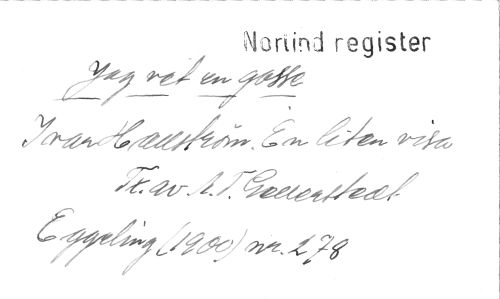 Norlind register
Jag vet en gosse
Ivar Hallström. En liten visa
Tr. av A. T. Gellerstedt
Eggeling (1900) nr. 278